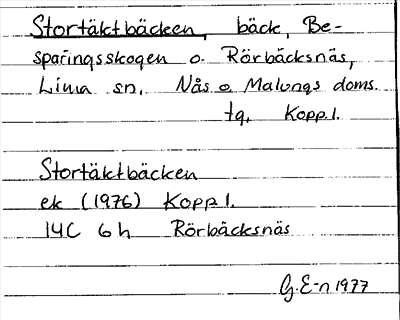 Stortäktbäcken, bäck, Be-
sparingsskogen o. Rörbäcksnäs,
Lima sn. Nås o Malungs doms.
tg. Kopp.l.
Stortäktbäcken
ek (1976) Kopp l.
14C 6h Rörbäcksnäs
G.E-n 1977